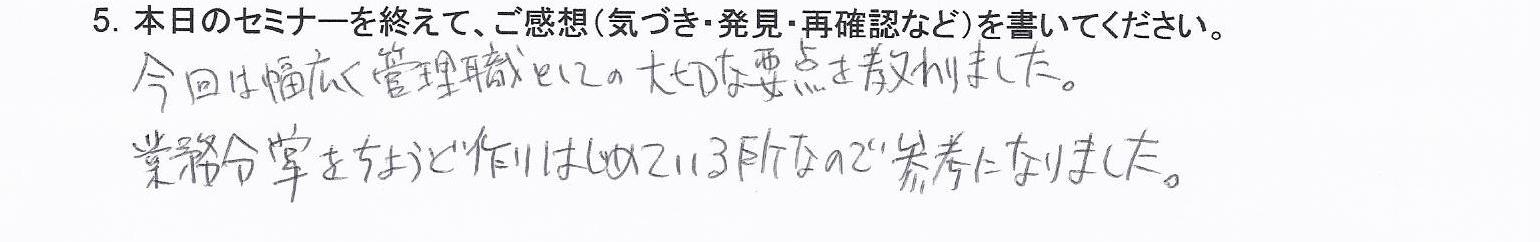 5. 本日のセミナーを終えて、ご感想(気づき・発見・再確認など)を書いてください。
今回は幅広く管理職としての大切な要点を教わりました。
業務分掌をちょうど作りはじめている所なので参考になりました。